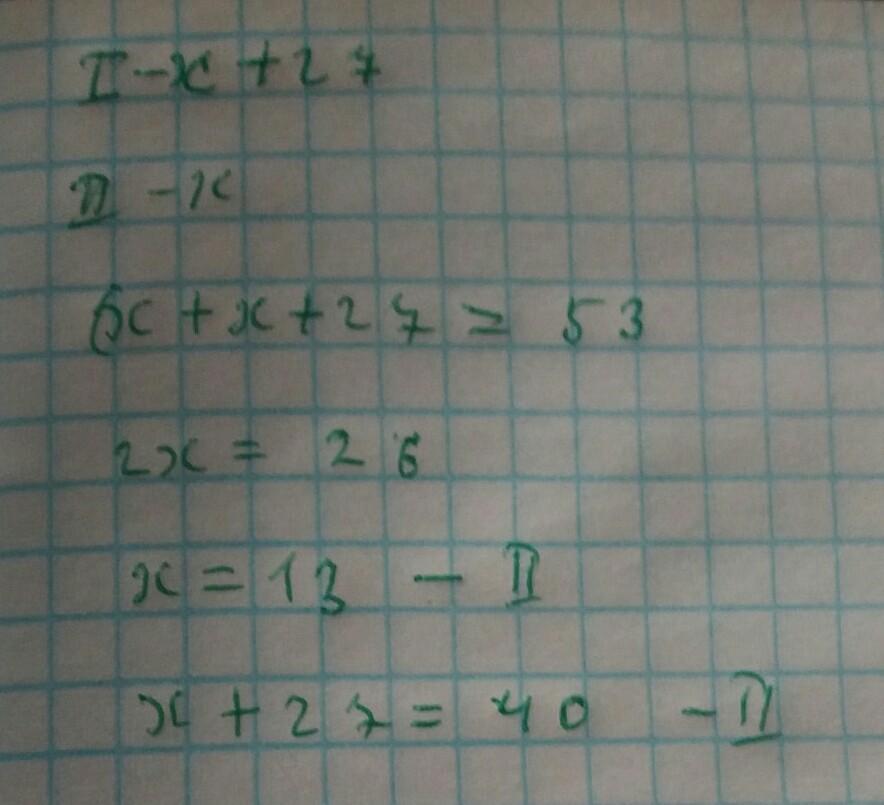 I - x + 27
II - x
x + x + 27 = 53
2x = 26
x = 13 - II
x + 27 = 40 - II